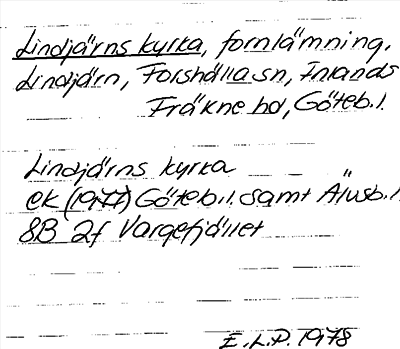 Lindjärns kyrka, fornlämning.
Lindjärn, Forshälla sn, Inlands
Fräkne hd, Göteb.l.
Lindjärns kyrka
ek (1977) Göteb.l. samt Älvsb.l.
8B 2f Vargefjället
E.L.P. 1978